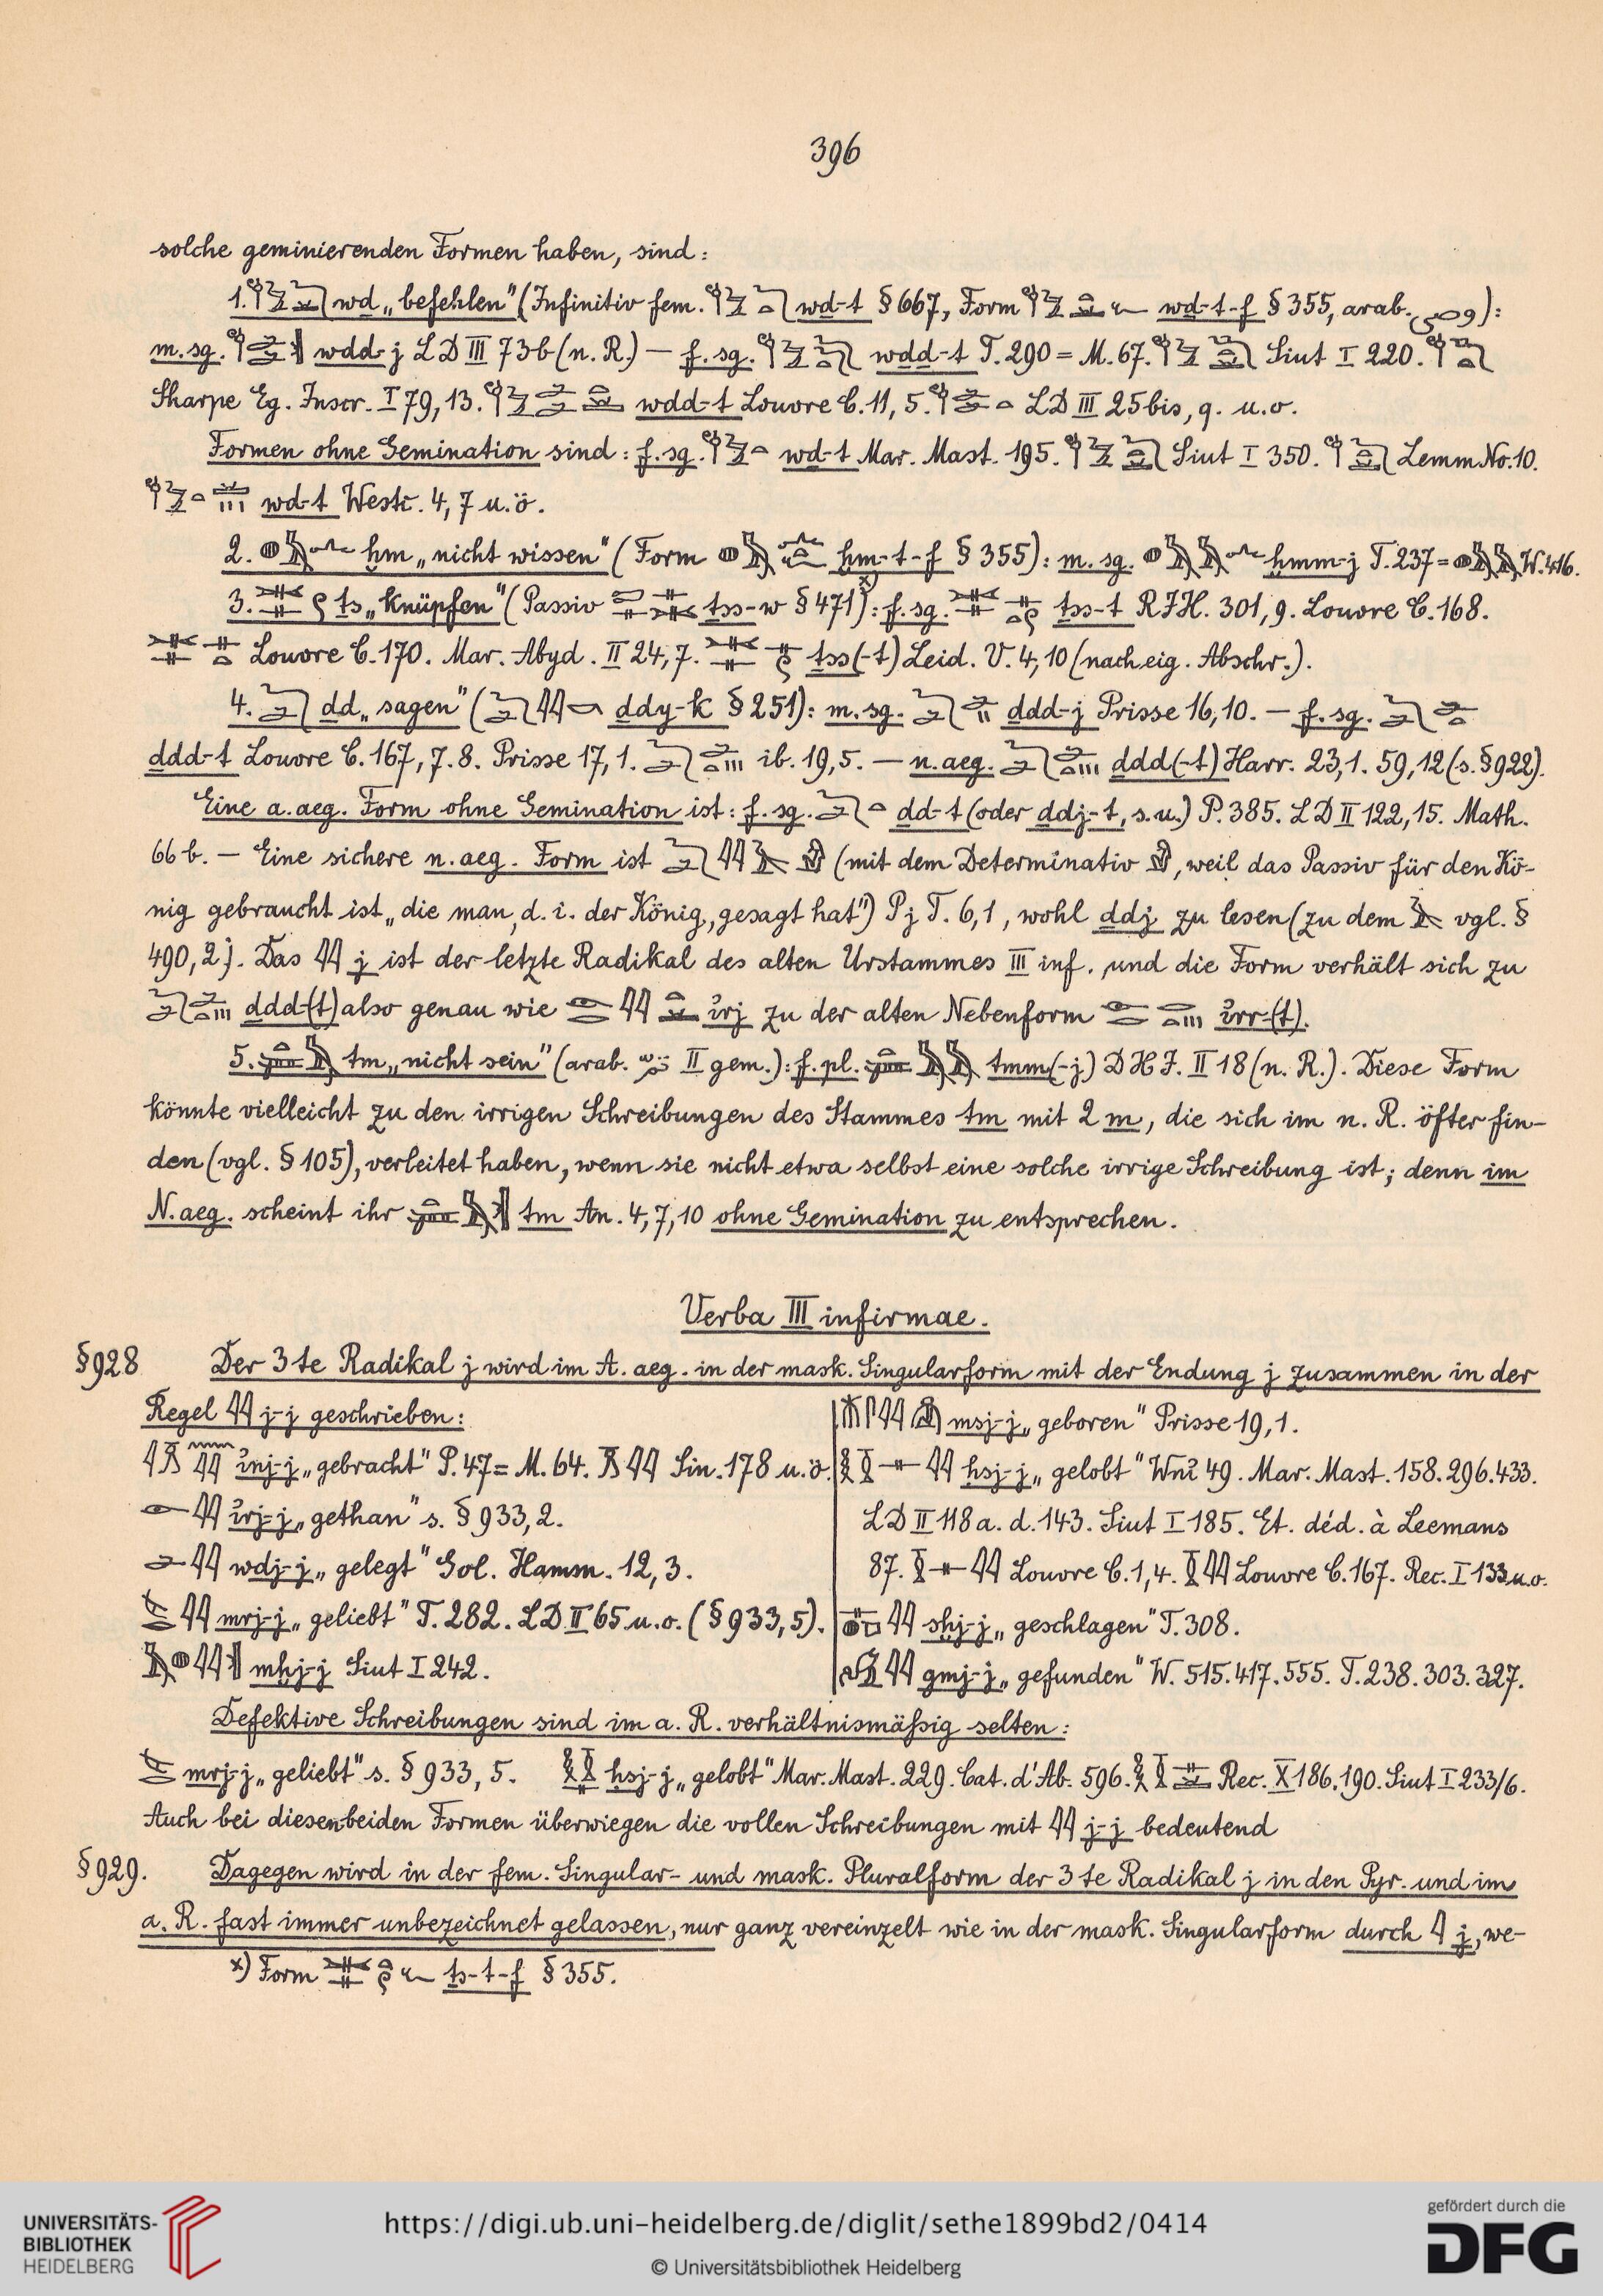 396
solche geminierenden Formen haben, sind:
1. wḏ „befehlen" (Infinitiv fem. wḏ-t § 667, Form wḏ-t-f § 355, arab. ):
m. sg. wḏḏ-j LD III 73b (n. R.) — f. sg. wḏḏ-t T. 290 = M. 67. Siut I 220.
Sharpe Eg. Inscr. I 79, 13. wḏḏ-t Louvre C. 11, 5. LD III 25 bis, q. u. o.
Formen ohne Gemination sind: f. sg. wḏ-t Mar. Mast. 195. Siut I 350. Lemm No. 10.
wḏ-t Westc. 4, 7 u. ö.
2. ḫm „nicht wissen" (Form ḫm-t-f § 355): m. sg. ḫmm-j T. 237 = W. 416.
3. ṯs „knüpfen" (Passiv ṯss-w § 471)x): f. sg. ṯss-t RIH. 301, 9. Louvre C. 168.
Louvre C. 170. Mar. Abyd. II 24, 7. ṯss(-t) Leid. V. 4, 10 (nach eig. Abschr.).
4. ḏd „sagen" ( ḏdy-k § 251): m. sg. ḏdd-j Prisse 16, 10. — f. sg.
ḏdd-t Louvre C. 167, 7. 8. Prisse 17, 1. ib. 19, 5. — n. aeg. ḏdd(-t) Harr. 23, 1. 59, 12 (s. § 922).
Eine a. aeg. Form ohne Gemination ist: f. sg. ḏd-t (oder ḏdj-t, s. u.) P. 385. LD II 122, 15. Math.
66 b. — Eine sichere n. aeg. Form ist (mit dem Determinativ , weil das Passiv für den Kö-
nig gebraucht ist „die man, d. i. der König, gesagt hat") Pj T. 6, 1, wohl ḏdj zu lesen (zu dem vgl. §
490, 2). Das j ist der letzte Radikal des alten Urstammes III inf. und die Form verhält sich zu
ḏdd-(t) also genau wie ỉrj zu der alten Nebenform ỉrr-(t).
5. tm „nicht sein" (arab. II gem.): f. pl. tmm(-j) DHI. II 18 (n. R.). Diese Form
könnte vielleicht zu den irrigen Schreibungen des Stammes tm mit 2 m, die sich im n. R. öfter fin-
den (vgl. § 105), verleitet haben, wenn sie nicht etwa selbst eine solche irrige Schreibung ist; denn im
N. aeg. scheint ihr tm An. 4, 7, 10 ohne Gemination zu entsprechen.
Verba III infirmae.
§ 928 Der 3te Radikal j wird im A. aeg. in der mask. Singularform mit der Endung j zusammen in der
Regel j-j geschrieben:
ỉnj-j „gebracht" P. 47 = M. 64. Sin. 178 u. ö.
ỉrj-j „gethan" s. § 933, 2.
wdj-j „gelegt" Gol. Hamm. 12, 3.
mrj-j „geliebt" T. 282. LD II 65 u. o. (§ 933, 5).
mḥj-j Siut I 242.
msj-j „geboren" Prisse 19, 1.
ḥsj-j „gelobt" Wnỉ 49. Mar. Mast. 158. 296. 433.
LD II 118 a. d. 143. Siut I 185. Et. déd. à Leemans
87. Louvre C. 1, 4. Louvre C. 167. Rec. I 133 u. o.
sḫj-j „geschlagen" T. 308.
gmj-j „gefunden" W. 515. 417. 555. T. 238. 303. 327.
Defektive Schreibungen sind im a. R. verhältnismäßig selten:
mrj-j „geliebt" s. § 933, 5. ḥsj-j „gelobt" Mar. Mast. 229. Cat. d'Ab. 596. Rec. X 186. 190. Siut I 233/6.
Auch bei diesen beiden Formen überwiegen die vollen Schreibungen mit j-j bedeutend
§ 929. Dagegen wird in der fem. Singular- und mask. Pluralform der 3te Radikal j in den Pyr. und im
a. R. fast immer unbezeichnet gelassen, nur ganz vereinzelt wie in der mask. Singularform durch j, we-
x) Form ṯs-t-f § 355.
UNIVERSITÄTS-
BIBLIOTHEK
HEIDELBERG
https://digi.ub.uni-heidelberg.de/diglit/sethe1899bd2/0414
© Universitätsbibliothek Heidelberg
gefördert durch die
DFG